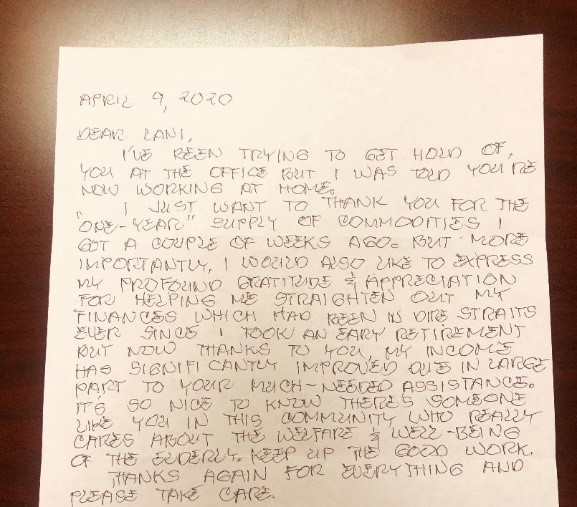 APRIL 9, 2020
DEAR LANI,
I'VE BEEN TRYING TO GET HOLD OF,
YOU AT THE OFFICE BUT I WAS TOLD YOU'RE
NOW WORKING AT HOME.
I JUST WANT TO THANK YOU FOR THE
"ONE-YEAR" SUPPLY OF COMMODITIES I
GOT A COUPLE OF WEEKS AGO. BUT MORE
IMPORTANTLY, I WOULD ALSO LIKE TO EXPRESS
MY PROFOUND GRATITUDE & APPRECIATION
FOR HELPING ME STRAIGHTEN OUT MY
FINANCES WHICH HAD BEEN IN DIRE STRAITS
EVER SINCE I TOOK AN EARY RETIREMENT
BUT NOW THANKS TO YOU, MY INCOME
HAS SIGNIFICANTLY IMPROVED DUE IN LARGE
PART TO YOUR MUCH-NEEDED ASSISTANCE.
IT'S SO NICE TO KNOW THERE'S SOMEONE
LIKE YOU IN THIS COMMUNITY WHO REALLY
CARES ABOUT THE WELFARE & WELL-BEING
OF THE ELDERLY. KEEP UP THE GOOD WORK.
THANKS AGAIN FOR EVERYTHING AND
PLEASE TAKE CARE.